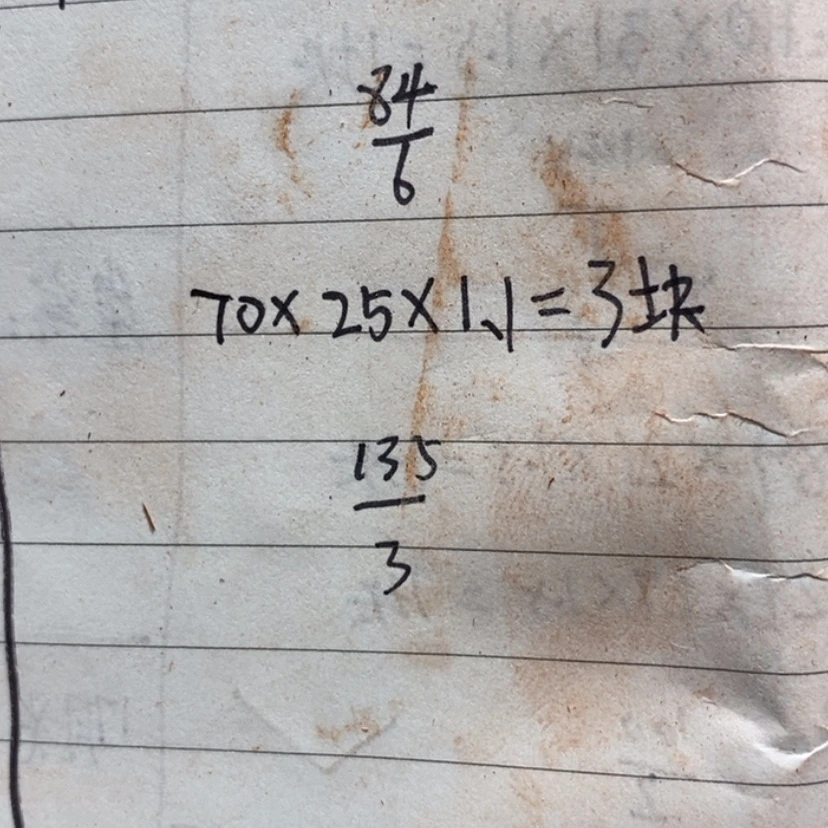 84
6
70×25×1.1=3块
135
3